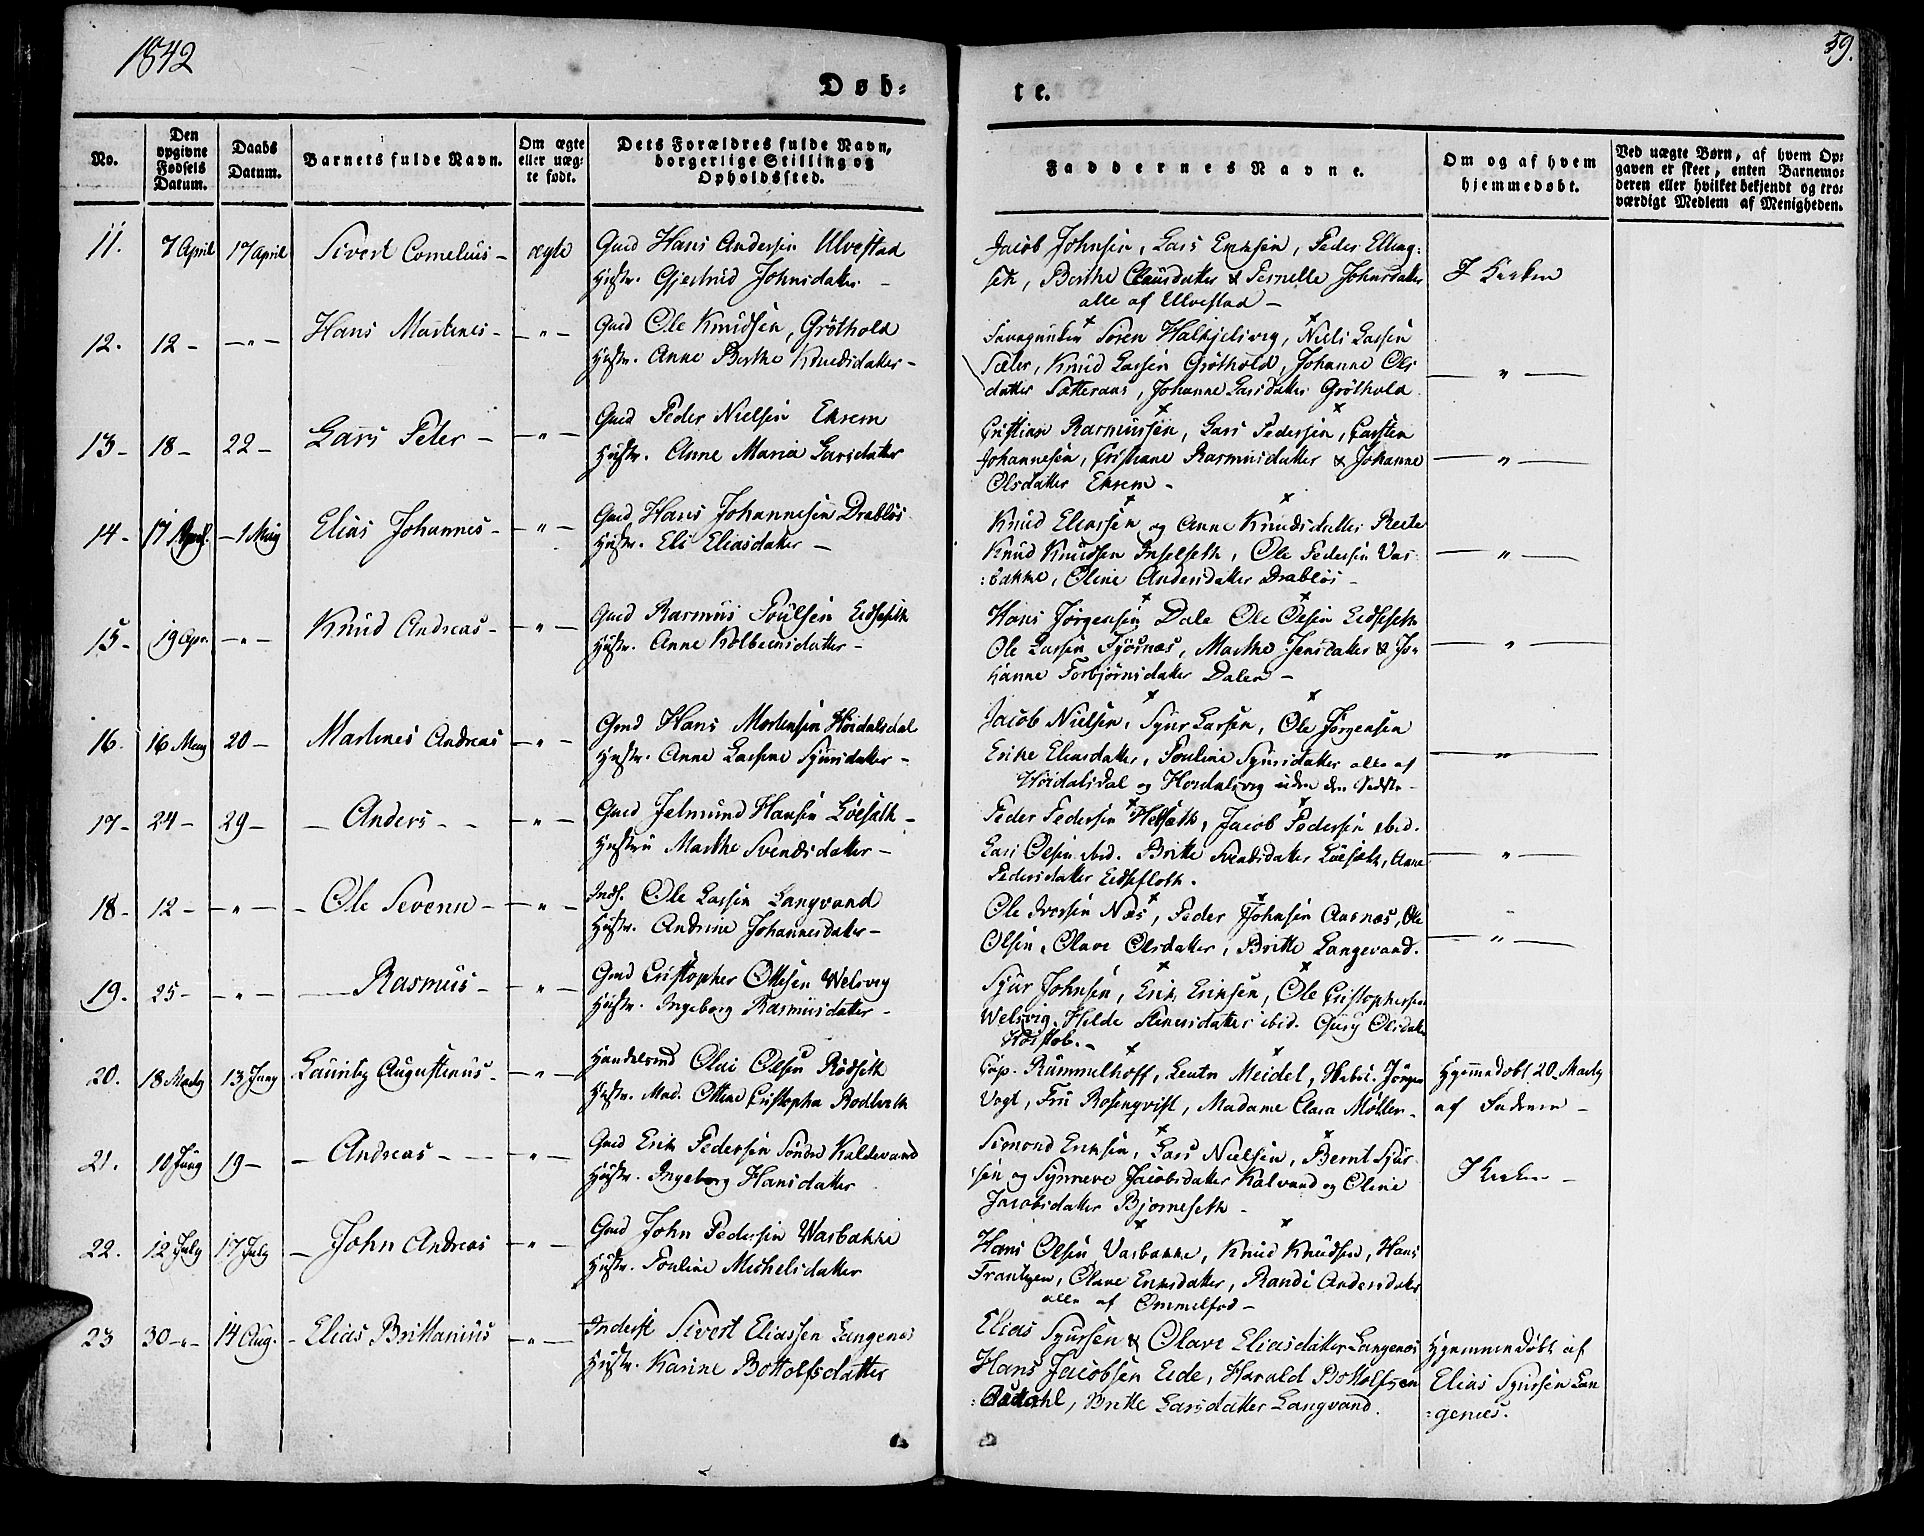 1842
59.
Døb-
te.
No.
Den opgivne Fødsels Datum.
Daabs Datum.
Barnets fulde Navn.
Om ægte eller uægte født.
Dets Forældres fulde Navn, borgerlige Stilling og Opholdssted.
Faddernes Navne.
Om og af hvem hjemmedøbt.
Ved uægte Børn, af hvem Opgaven er skeet, enten Barnemoderen eller hvilket bekjendt og troværdigt Medlem af Menigheden.
11. 7 April 17 April Sivert Cornelius - ægte
Gmd Hans Andersen Ulvestad
Hustr. Gjertrud Johnsdatter -
Jacob Johnsen, Lars Eriksen, Peder Elling-
sen, Berthe Clausdatter & Pernille Johnsdatter
alle af Ulvestad -
I Kirken
12. 12 - - " - Hans Martines - - " -
Gmd Ole Knudsen, Grøthold
Hustr. Anne Berthe Knudsdatter -
Søren Halkjelsvig, Niels Larsen
Sæter, Knud Larsen Grøthold, Johanne Ols
datter Sætteraas, Johanne Larsdatter Grøthold
- " -
13 - 18 - 22 - Lars Peter - - " -
Gmd Peder Nielsen Ekrem
Hustr. Anne Maria Larsdatter
Cristian Rasmussen, Lars Pedersen, Carsten
Johannesen, Cristiane Rasmusdatter & Johanne
Olsdatter Ekrem -
- " -
14 - 17 April. - 1 May Elias Johannes - - " -
Gmd Hans Johannesen Drabløs
Hustr. Eli Eliasdatter -
Knud Eliassen og Anne Knudsdatter Reite
Knud Knudsen Inselseth, Ole Pedersen Var-
bakke, Oline Andersdatter Drabløs -
- " -
15 - 19 Apr. - " - Knud Andreas - - " -
Gmd Rasmus Poulsen Eidseseth
Hustr. Anne Kolbeinsdatter -
Hans Jørgensen Dale Ole Olsen Eidseseth
Ole Larsen Fyørnæs, Marthe Jensdatter & Jo-
hanne Torbjørnsdatter Dalen -
- " -
16. 16 May 20 - Martines Andreas - " -
Gmd Hans Mortensen Hoidalsdal
Hustr. Anne Larsine Syursdatter -
Jacob Nielsen, Syur Larsen, Ole Jørgensen
Erike Eliasdatter, Pouline Syursdatter alle af
Hoidalsdal og Hordalsvig uden den Sidste -
- " -
17 - 24 - 29 - - Anders - - - " -
Gmd Jelmund Hansen Løeseth -
Hustru Marthe Svendsdatter -
Peder Pedersen Helseth, Jacob Pedersen ibid.
Lars Olsen ibid. Britte Svendsdatter Løeseth, Anne
Pedersdatter Eidsefloth.
- " -
18 - 12 - - " - - Ole Severin - - " -
Inds. Ole Larsen Langvand
Hustr. Andrine Johannesdatter -
Ole Iversen Næs, Peder Johnsen Aarnæs, Ole
Olsen, Olave Olsdatter, Britte Langevand.
- " -
19. 25 - - " - - Rasmus - - " -
Gmd Cristopher Ottesen Welsvig
Hustr. Ingeborg Rasmusdatter -
Syur Johnsen, Erik Eriksen, Ole Cristophersen
Welsvig. Helde Steensdatter ibid. Gury Olsdatter
-
20. 18 Marty 13 Juny Lauritz Augustinus - - " -
Handelsmd Olai Olsen Rødseth
Hustr. Mad. Ottine Cristopha Rodseth
Cap. Rummelhoff, Leutn Meidel, Jørgen
Vogt, Fru Rosenqvist, Madame Clara Møller -
Hjemmedøbt 20 Marty
af Faderen -
21. 10 Juny 19 - - Andreas - - - " -
Gmd Erik Pedersen Søndre Kaldevand
Hustr. Ingeborg Hansdatter
Simond Eriksen, Lars Nielsen, Bernt Syur-
sen og Synneve Jacobsdatter Kalvand og Oline
Jacobsdatter Bjorneseth -
I Kirken -
22. 12 July 17 July - John Andreas - " -
Gmd John Pedersen Warbakke
Hustr. Pouline Michelsdatter
Hans Olsen Varbakke, Knud Knudsen, Hans
Frantzen, Olave Eriksdatter, Randi Andersdatter
alle af Ommelfod -
23 30 - " - 14 Aug. - Elias Brittanius - " -
Inderst Sivert Eliassen Langenes
Hustr. Karine Bottolfsdatter
Elias Syursen & Olave Eliasdatter Langenes
Hans Jacobsen Eide, Harald Bottolfsen
Aasdahl, Britte Larsdatter Langvand.
Hjemmendøbt af
Elias Syursen Lan
-genes.